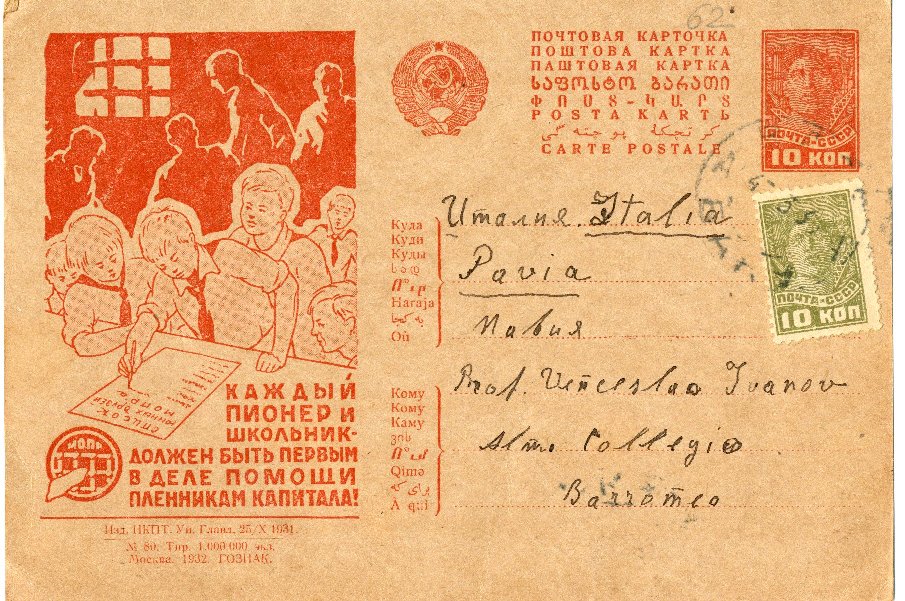 62
ПОЧТОВАЯ КАРТОЧКА
ПОШТОВА КАРТКА
ПАШТОВАЯ КАРТКА
ՓՈՍՏ-ԿԱՐՏ
POSTA KARTЬ
CARTE POSTALE
ПОЧТА-СССР
10 КОП
ПОЧТА-СССР
10 КОП
Куда
Куди
Куды
Haraja
Où
Италия Italia
Pavia
Павия
Кому
Кому
Каму
Qimə
A qui
Prof. Venceslao Ivanov
Alm. Collegio
Borromeo
СПИСОК
ЮННЫХ ДРУЗЕЙ
МОПРА
МОПР
КАЖДЫЙ
ПИОНЕР И
ШКОЛЬНИК-
ДОЛЖЕН БЫТЬ ПЕРВЫМ
В ДЕЛЕ ПОМОЩИ
ПЛЕННИКАМ КАПИТАЛА!
Изд. НКПТ. Уп. Главл. 25/X 1931.
№ 80. Тир. 1.000.000 экз.
Москва. 1932. ГОЗНАК.